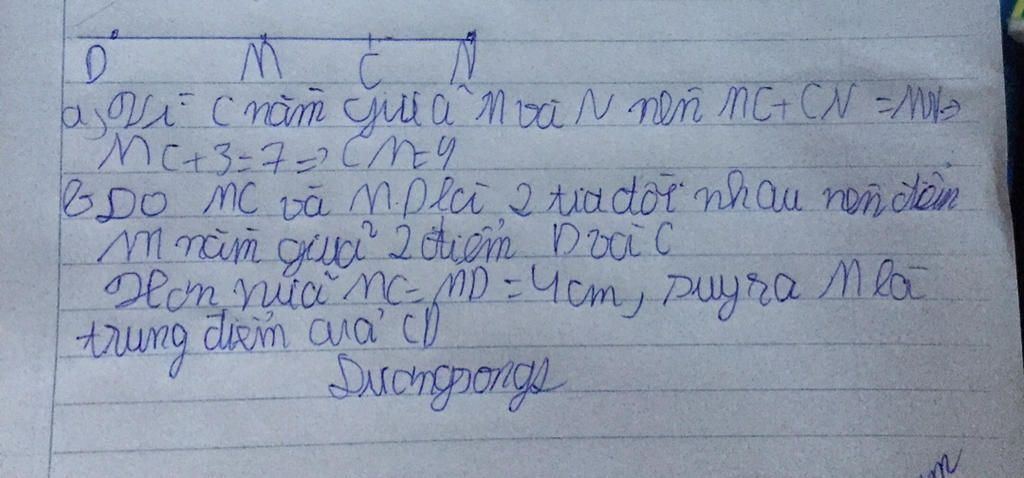 D M C N
a, Vì C nằm giữa M và N nên MC + CN = MN =>
MC + 3 = 7 => CM = 4
b, DO MC và MD là 2 tia đối nhau nên điểm
M nằm giữa 2 điểm D và C
Hơn nữa MC = MD = 4cm, suy ra M là
trung điểm của CD